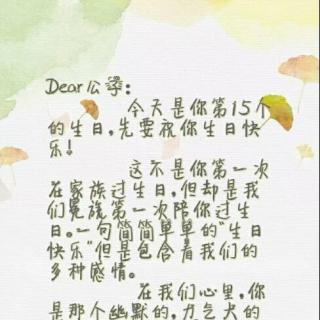 Dear公举:
今天是你第15个
的生日,先要祝你生日快
乐!
这不是你第一次
在家族过生日,但却是我
们冕族第一次陪你过生
日。一句简简单单的“生日
快乐”但是包含着我们的
多种感情。
在我们心里,你
是那个幽默的,力气大的